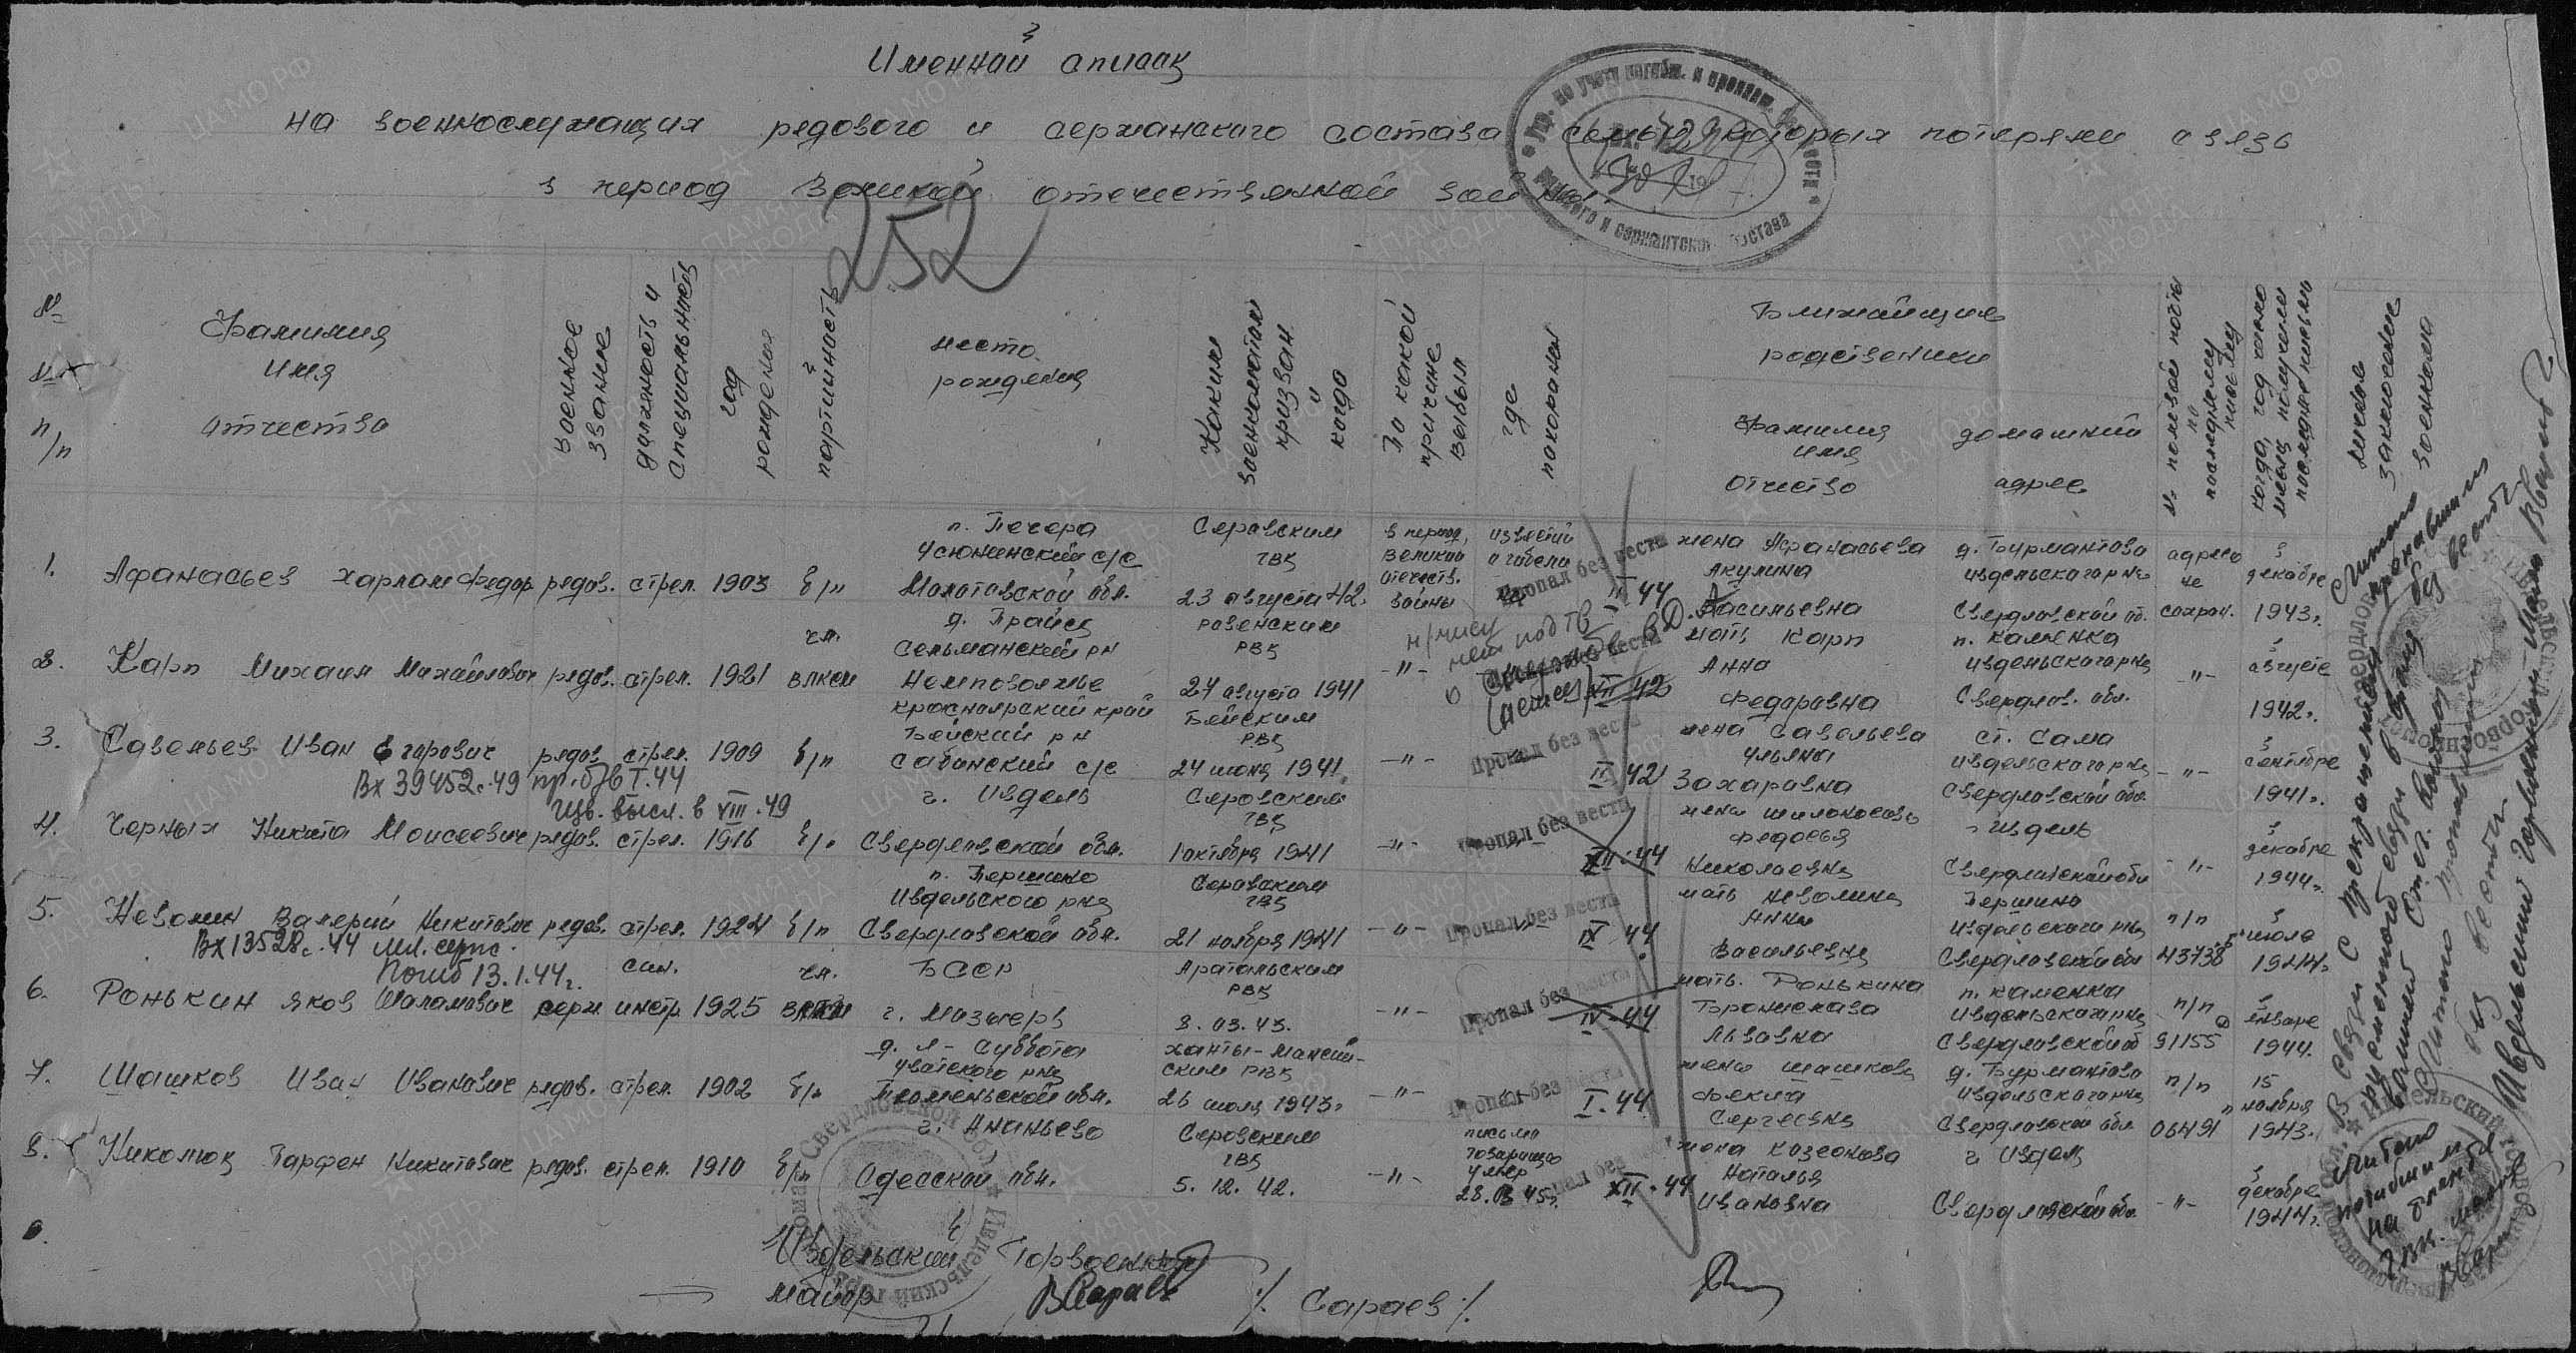 Именной список
на военнослужащих рядового и сержанского состава семьи которых потеряли связь
в период Великой отечественной войны.
252
№ № п/п
Фамилия имя отчество
военное звание
должность и специальность
год рождения
партийность
место рождения
Каким военкоматом призван и когда
По какой причине выбыл
где похоронен
Ближайшие родственики
Фамилия имя отчество
домашний адрес
№ полевой почты по последнему письму
когда, год число месяц получено последнее письмо
личное заключение военкома
1. Афанасьев Харлам Федор. рядов. стрел. 1903 б/п
п. Печера
Усюнинский с/с
Молотовской обл.
Серовским
ГВК
23 августа 42.
в период Великой отечеств. войны
известий о гибели
Пропал без вести
44
жена Афанасьева
Акулина
Васильевна
д. Бурмантово
ивдельского р-на
Свердловской об.
адрес не сохран.
в декабре 1943г.
2. Карп Михаил Михайлович рядов. стрел. 1921 чл. влксм
д. Прайс
Сельманский рн
Немповолжье
ровенским
РВК
27 августа 1941
-"-
(немец)
XII 42
мать Карп
Анна
Федоровна
п. каменка
ивдельского р-на
Свердлов. обл.
-"-
в августе 1942г.
3. Савельев Иван Егорович рядов. стрел. 1909 б/п
Вх 39452с.49 пр. б/в I.44
Изв. высл. в VIII.49
красноярский край
Бейский рн
Сабинский с/с
Бейским
РВК
24 июня 1941.
-"-
Пропал без вести
II 42
жена Савельева
Ульяна
Захаровна
ст. Сама
ивдельского р-на
Свердловской обл.
-"-
в сентябре 1941г.
4. Черных Никита Моисеевич рядов. стрел. 1916 б/п
г. Ивдель
Свердловской обл.
Серовским
ГВК
1 октября 1941
-"-
Пропал без вести
XII.44
жена
Федосья
Николаевна
г. Ивдель
Свердловской обл
-"-
в декабре 1944г.
5. Неволин Валерий Никитович рядов. стрел. 1924 б/п
Вх 13528с.44 мл. серж.
Погиб 13.1.44г.
п. Першино
Ивдельского р-на
Свердловской обл.
Серовским
ГВК
21 ноября 1941
-"-
Пропал без вести
IX.44
мать Неволина
Анна
Васильевна
Першино
ивдельского р-на
Свердловской обл
п/п
43738
в июле 1944г.
6. Ронькин Яков Шаламович серж. сан. инстр. 1925 чл. влксм
БССР
г. Мозырь
Аратальским
РВК
8.03.43.
-"-
Пропал без вести
IV.44
мать. Ронькина
Бронислава
Львовна
п. каменка
Ивдельского р-на
Свердловской об
п/п
91155
в январе 1944.
7. Шашков Иван Иванович рядов. стрел. 1902 б/п
д. Л-Суббота
Уватского р-на
Тюменьской обл.
ханты-Мансийским РВК
26 июля 1943г.
-"-
Пропал без вести
I.44
жена Шашкова
Фекла
Сергеевна
д. Бурмантово
Ивдельского р-на
Свердловской обл.
п/п
06491
15 ноября 1943.
8. Николюк Парфен Никитович рядов. стрел. 1910 б/п
г. Ананьево
Одесской обл.
Серовским
ГВК
5.12.42.
-"-
письмо
товарища
умер
XII.44
жена
Наталья
Ивановна
г. Ивдель
Свердловской обл.
-"-
в декабре 1944г.
Ивдельский Горвоенком
майор
ВСараев
/Сараев/.
Считаю пропавшим без вести
В связи с прекращением письменного связи в период Великой Отеч. войны
Считаю пропавшими без вести
Ивдельский Горвоенком майор
считаю погибшим